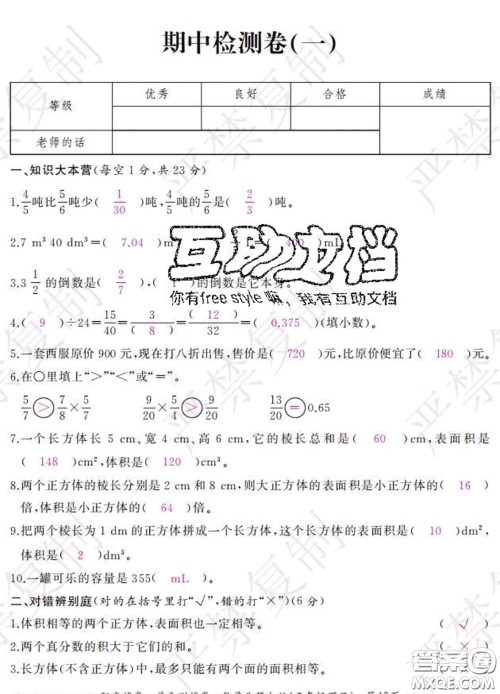 期中检测卷(一)
等级 优秀 良好 合格 成绩
老师的话
一、知识大本营(每空1分,共23分)
1. 4/5吨比5/6吨少( 1/30 )吨,4/5吨的5/6是( 2/3 )吨。
2. 7 m³ 40 dm³=( 7.04 )m
互助文档
你有free style嘛,我有互助文档
3. 3 1/2的倒数是( 2/7 ),( 1 )的倒数是它本身。
4. ( 9 )÷24=15/40=3/( 8 )=( 12 )/32=( 0.375 )(填小数)。
5. 一套西服原价900元,现在打八折出售,售价是( 720 )元,比原价便宜了( 180 )元。
6. 在○里填上“>”“<”或“=”。
5/7 > 7/8×5/7 9/20×5/4 > 9/20 13/20 = 0.65
7. 一个长方体长5 cm、宽4 cm、高6 cm,它的棱长总和是( 60 )cm,表面积是
( 148 )cm²,体积是( 120 )cm³。
8. 两个正方体的棱长分别是2 cm和8 cm,则大正方体的表面积是小正方体的( 16 )
倍,体积是小正方体的( 64 )倍。
9. 把两个棱长为1 dm的正方体拼成一个长方体,这个长方体的表面积是( 10 )dm²,
体积是( 2 )dm³。
10. 一罐可乐的容量是355( mL )。
二、对错辨别庭(对的在括号里打“√”,错的打“×”)(6分)
1. 体积相等的两个正方体,表面积也一定相等。 ( √ )
2. 两个真分数的积大于它们的和。 ( × )
3. 长方体(不含正方体)中,最多只能有两个面的面积相等。
严禁复制